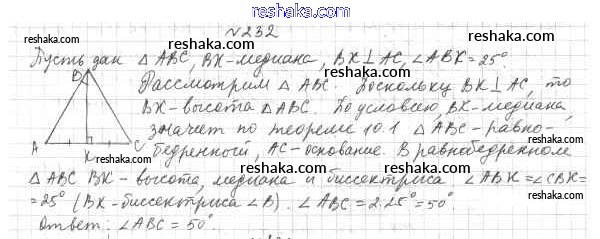 reshaka.com
№232
Пусть дан △ ABC, BK-медиана, BK⊥AC, ∠ABK=25°
Рассмотрим △ ABC. Поскольку BK⊥AC, то
BK-высота △ABC. По условию, BK-медиана,
значит по теореме 10.1 △ABC-равно-
бедренный, AC-основание. В равнобедренном
△ ABC BK- высота, медиана и биссектриса ∠ABK=∠CBK=
=25° (BK-биссектриса ∠B). ∠ABC=2·25°=50°.
Ответ: ∠ABC=50°.
B
A
K
C
reshaka.com
reshaka.com
reshaka.com
reshaka.com
reshaka.com
reshaka.com
reshaka.com
reshaka.com
reshaka.com